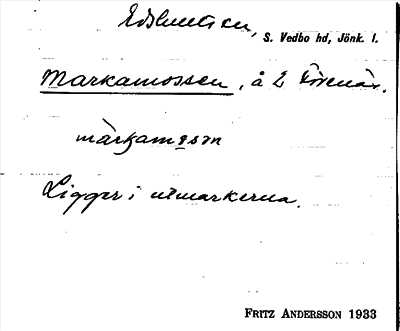 Edshultssn, S. Vedbo hd, Jönk. l.
Markamossen, å 2 Förenäs.
màrkamosn
Ligger i utmarkerna.
FRITZ ANDERSSON 1933